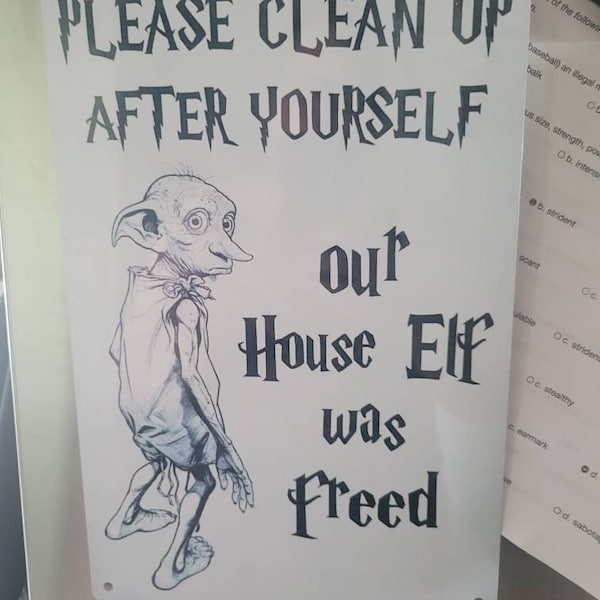 PLEASE CLEAN UP
AFTER YOURSELF
our
House Elf
was
freed
of the following
baseball) an illegal
balk
us size, strength,
b.
b. strident
scant
c.
c. strident
c. stealthy
c. earmark
d.
d.